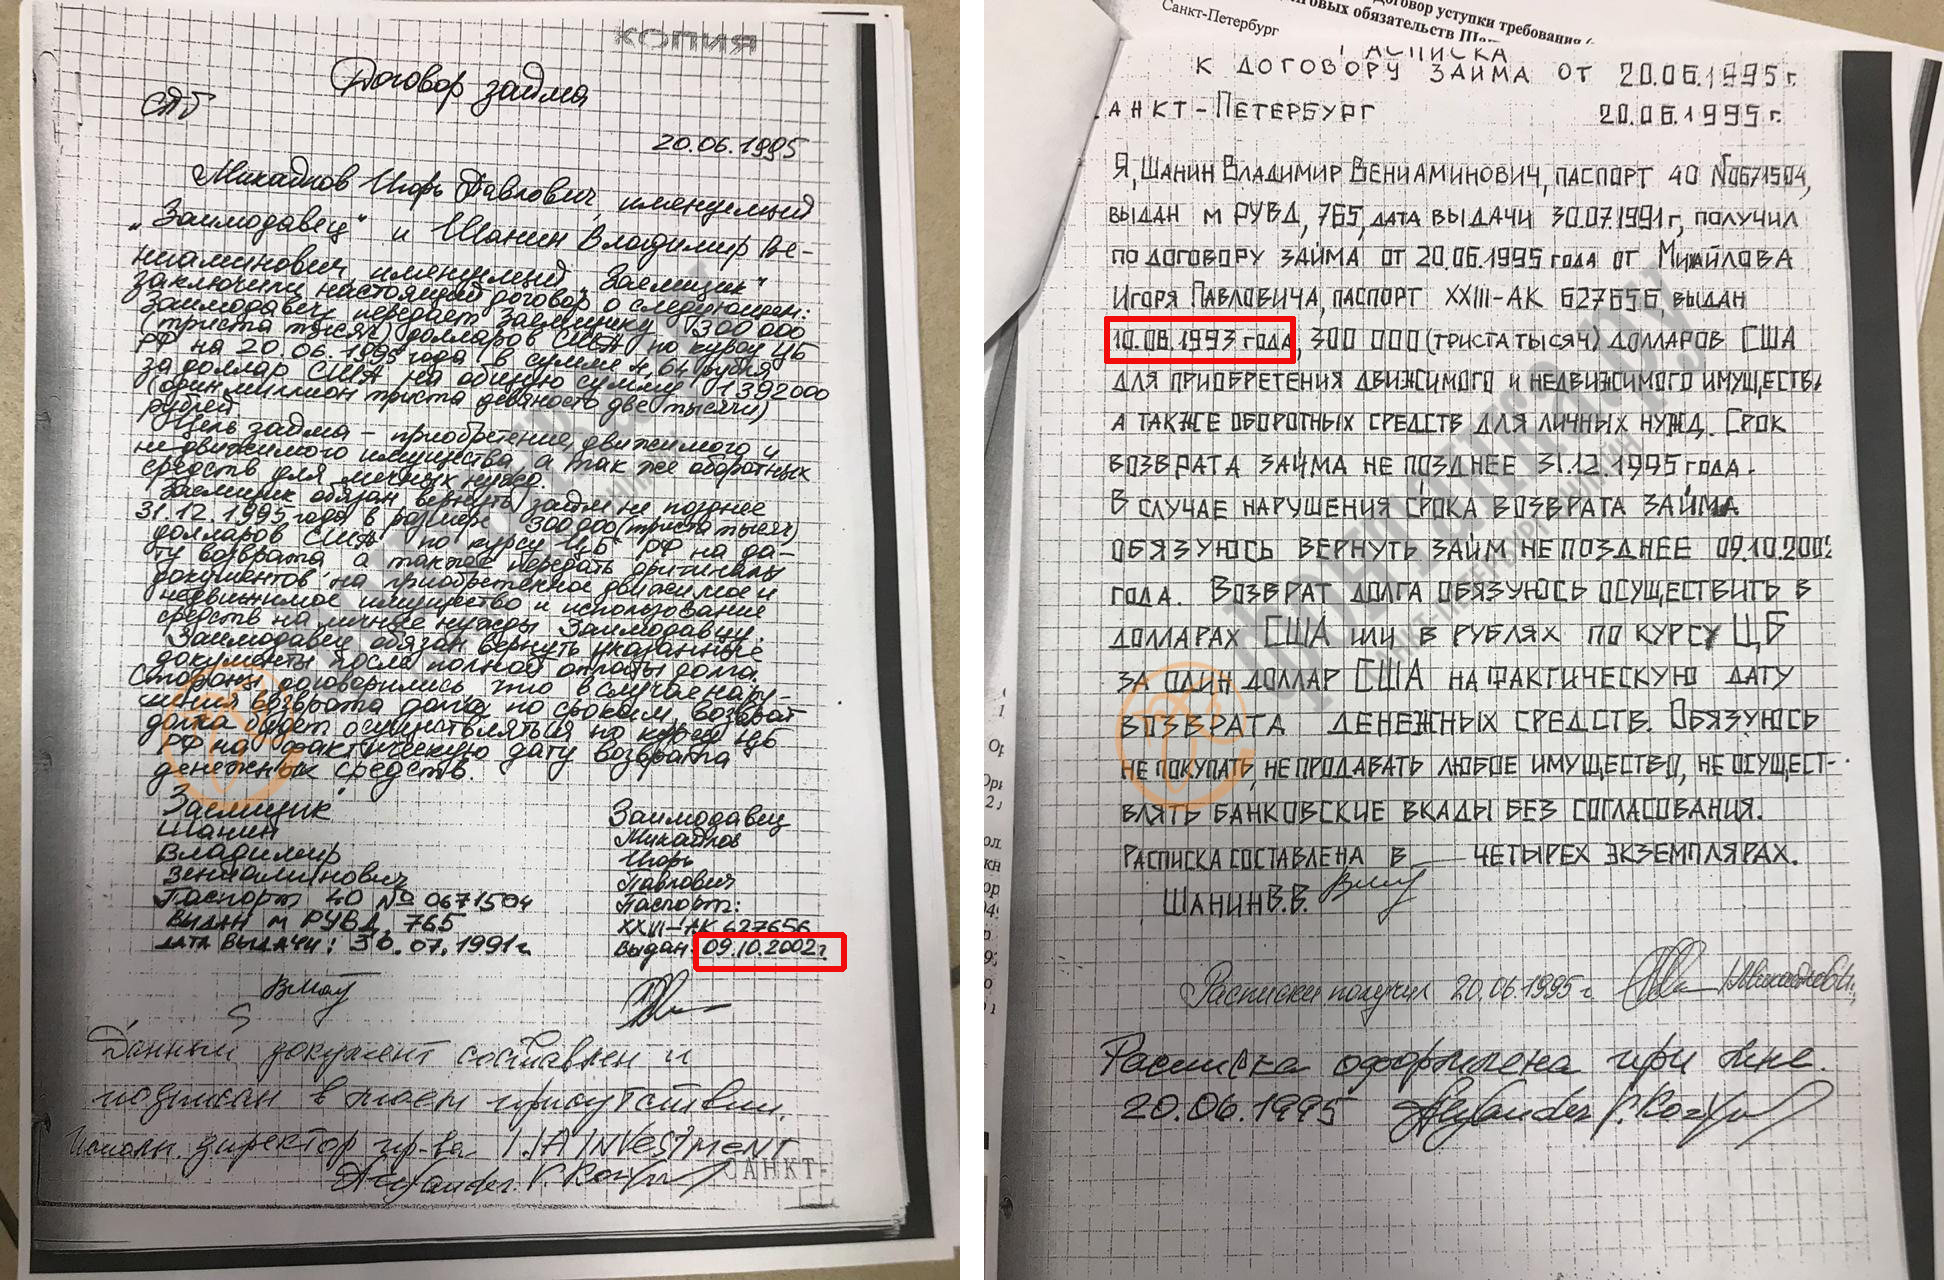 КОПИЯ
Договор займа
СПб
20.06.1995
Михайлов Игорь Павлович, именуемый
"Заимодавец" и Шанин Владимир Ве-
ниаминович именуемый "Заемщик"
заключили настоящий договор о следующем:
Заимодавец передает Заемщику 300 000
(триста тысяч) долларов США по курсу ЦБ
РФ на 20.06.1995 года (в сумме 4,64 рубля
за доллар США на общую сумму 1 392 000
(один миллион триста девяносто две тысячи)
рублей
Цель займа - приобретение движимого и
недвижимого имущества а так же оборотных
средств для личных нужд.
Заемщик обязан вернуть займ не позднее
31.12.1995 года в размере 300 000 (триста тысяч)
долларов США по курсу ЦБ РФ на да-
ту возврата а также передать оригиналы
документов на приобретенное движимое и
недвижимое имущество и использование
средств на личные нужды Заимодавцу.
Заимодавец обязан вернуть указанные
документы после полной оплаты долга.
Стороны договорились что в случае нару-
шения возврата долга по срокам, возврат
долга будет осуществляться по курсу ЦБ
РФ на фактическую дату возврата
денежных средств.
Заемщик
Шанин
Владимир
Вениаминович
Паспорт 40 № 0671504
выдан м РУВД, 765
дата выдачи: 30.07.1991г
Заимодавец
Михайлов
Игорь
Павлович
Паспорт:
XXIII-АК 627656
выдан: 09.10.2002г.
Данный документ составлен и
подписан в моем присутствии.
директор пр-ва I.J.A INVESTMENT
Alexander
САНКТ-
Договор уступки требования
говых обязательств Ша
Санкт-Петербург
РАСПИСКА
К ДОГОВОРУ ЗАЙМА ОТ 20.06.1995г.
АНКТ-ПЕТЕРБУРГ 20.06.1995г.
Я, ШАНИН ВЛАДИМИР ВЕНИАМИНОВИЧ, ПАСПОРТ 40 №0671504,
ВЫДАН М РУВД, 765, ДАТА ВЫДАЧИ 30.07.1991г, ПОЛУЧИЛ
ПО ДОГОВОРУ ЗАЙМА ОТ 20.06.1995 ГОДА ОТ МИХАЙЛОВА
ИГОРЯ ПАВЛОВИЧА, ПАСПОРТ XXIII-АК 627656, ВЫДАН
10.08.1993 ГОДА, 300 000 (ТРИСТА ТЫСЯЧ) ДОЛЛАРОВ США
ДЛЯ ПРИОБРЕТЕНИЯ ДВИЖИМОГО И НЕДВИЖИМОГО ИМУЩЕСТВ
А ТАКЖЕ ОБОРОТНЫХ СРЕДСТВ ДЛЯ ЛИЧНЫХ НУЖД. СРОК
ВОЗВРАТА ЗАЙМА НЕ ПОЗДНЕЕ 31.12.1995 ГОДА.
В СЛУЧАЕ НАРУШЕНИЯ СРОКА ВОЗВРАТА ЗАЙМА
ОБЯЗУЮСЬ ВЕРНУТЬ ЗАЙМ НЕ ПОЗДНЕЕ 09.10.2002
ГОДА. ВОЗВРАТ ДОЛГА ОБЯЗУЮСЬ ОСУЩЕСТВИТЬ В
ДОЛЛАРАХ США ИЛИ В РУБЛЯХ ПО КУРСУ ЦБ
ЗА ОДИН ДОЛЛАР США НА ФАКТИЧЕСКУЮ ДАТУ
ВОЗВРАТА ДЕНЕЖНЫХ СРЕДСТВ. ОБЯЗУЮСЬ
НЕ ПОКУПАТЬ, НЕ ПРОДАВАТЬ ЛЮБОЕ ИМУЩЕСТВО, НЕ ОСУЩЕСТ-
ВЛЯТЬ БАНКОВСКИЕ ВКАДЫ БЕЗ СОГЛАСОВАНИЯ.
РАСПИСКА СОСТАВЛЕНА В ЧЕТЫРЕХ ЭКЗЕМПЛЯРАХ.
ШАНИН В.В.
Расписки получил 20.06.1995г
Расписка оформлена при мне.
20.06.1995 Alexander
фонтанка.ру
САНКТ-ПЕТЕРБУРГ